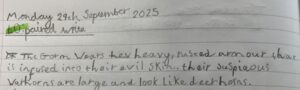 Monday 29th September 2025
LO paired write
The Gorm Wears hes heavy, nosed aron our that
is infused into their evil skin... their suspiaous
Vathorns are large and look like deer horns.